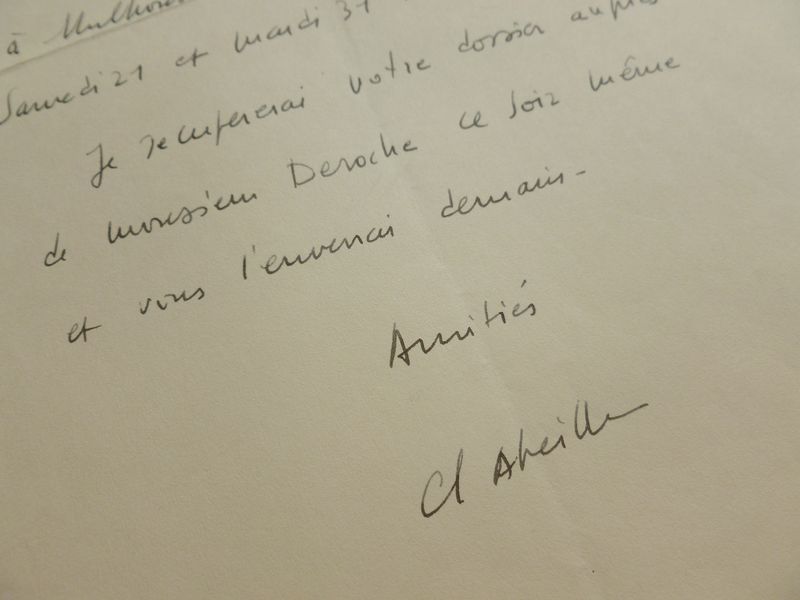 à Mulhouse
Samedi 21 et mardi 31
Je récupérerai votre dossier auprès
de monsieur Deroche ce soir même
et vous l'enverrai demain-
Amitiés
Cl Abeille